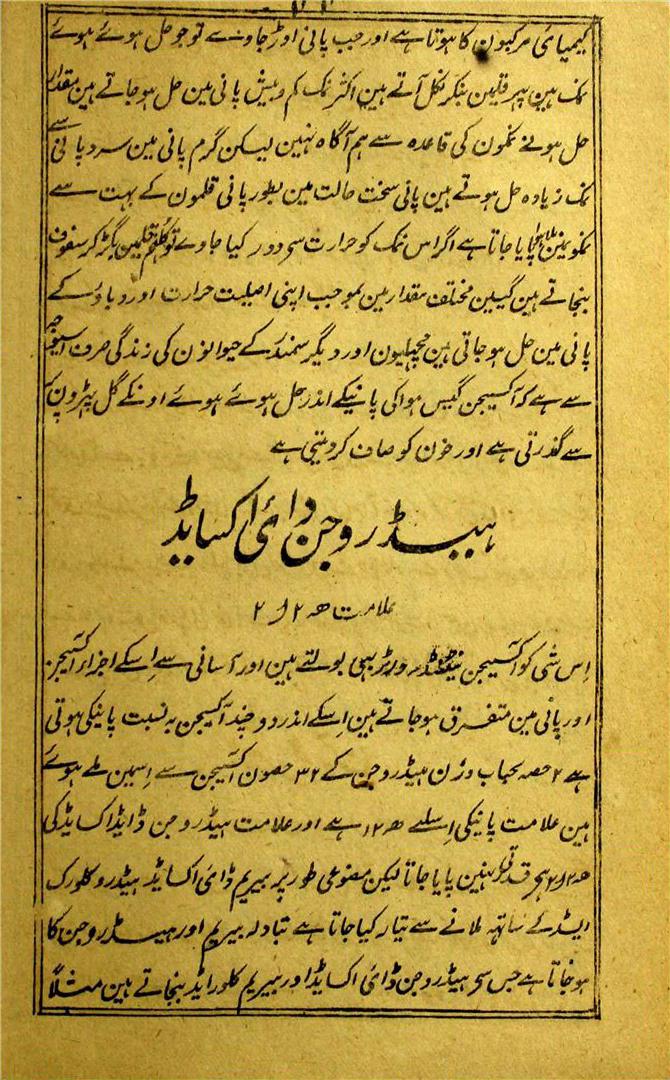 کیمیائی مرکبون کا ہوتا ہے اور جب پانی اوڑجاوے تو جو حل ہوئے ہوئے
نمک ہین پہر قلمین بنکر نکل آتے ہین اکثر نمک کم و بیش پانی مین حل ہو جاتے ہین مقدار
حل ہونے نمکون کی قاعدہ سے ہم آگاہ نہین لیکن گرم پانی مین سرد پانی سے
نمک زیادہ حل ہوتے ہین پانی سخت حالت مین بطور پانی قلمون کے بہت سے
نمکونمین پایا جاتا ہے اگر اس نمک کو حرارت سی دور کیا جاوے تو قلمین بگڑ کر سفوف
بنجاتے ہین گیسین مختلف مقدار مین بموجب اپنی اصلیت حرارت اور دباؤ کے
پانی مین حل ہو جاتی ہین مچہلیون اور دیگر سمندر کے حیوانون کی زندگی صرف اسیوجہ
سے ہے کہ آکسیجن گیس ہوا کی پانیکے اندر حل ہوئے ہوئے اونکے گل پہڑون
سے گذرتی ہے اور خون کو صاف کر دیتی ہے
ہیڈروجن ڈائی اکسایڈ
علامت ھ۲ا۲
اِس شی کو آکسیجن واٹر بہی بولتے ہین اور آسانی سے اِسکے اجزا آکسیجن
اور پانی مین متفرق ہو جاتے ہین اِسکے اندر دو چند آکسیجن بہ نسبت پانیکی ہوتی
ہے ۲ حصہ بحساب وزن ہیڈروجن کے ۳۲ حصون آکسیجن سے اِسمین ملے ہوئے
ہین علامت پانیکی اِسلیے ھ۲ا ہے اور علامت ہیڈروجن ڈایڈ اکسایڈ کی
ھ۲ا۲ ہی قدرتی نہین پایا جاتا لیکن مصنوعی طور پر بیریم ڈائی اکسایڈ ہیڈرو کلورک
ایسڈ کے ساتہہ ملانے سے تیار کیا جاتا ہے تبادلہ بیریم اور ہیڈروجن کا
ہو جاتا ہے جس سی ہیڈروجن ڈائی اکسایڈ اور بیریم کلورایڈ بنجاتے ہین مثلاً